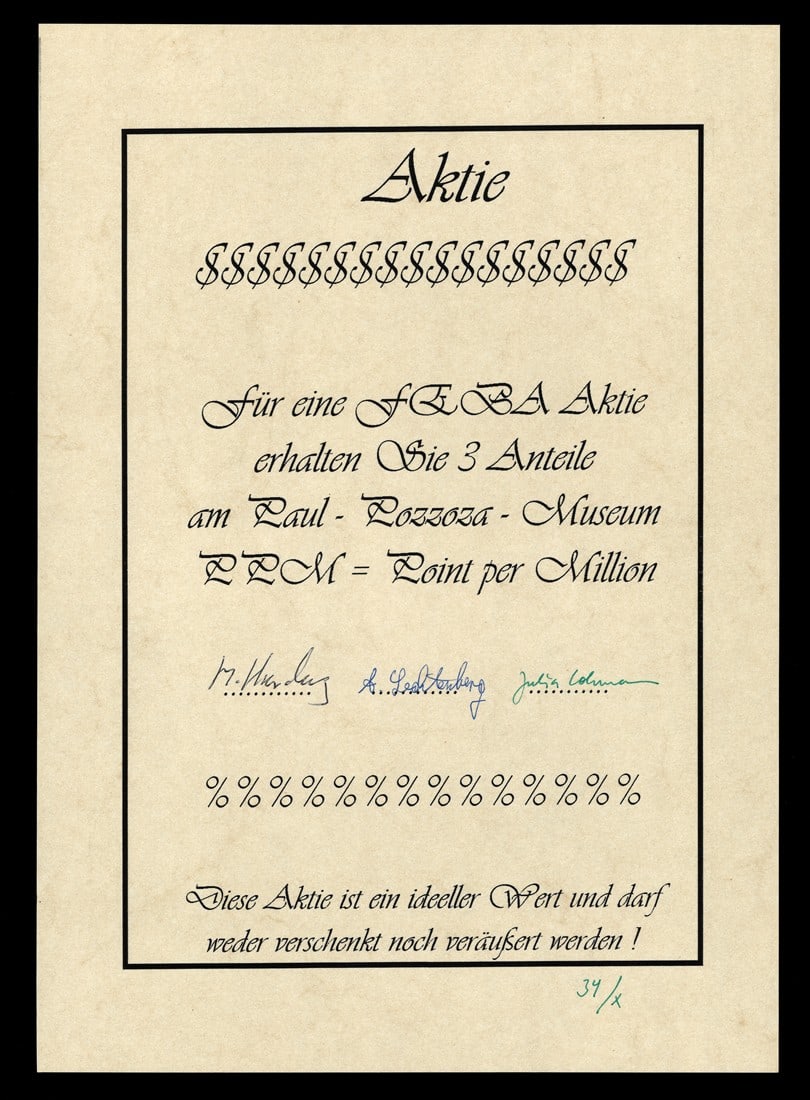 Aktie
$$$$$$$$$$$$$$$$$
Für eine FEBA Aktie
erhalten Sie 3 Anteile
am Paul - Pozzoza - Museum
PPM = Point per Million
Lechtenberg Julia
% % % % % % % % % % % % % %
Diese Aktie ist ein ideeller Wert und darf
weder verschenkt noch veräußert werden !
34/x